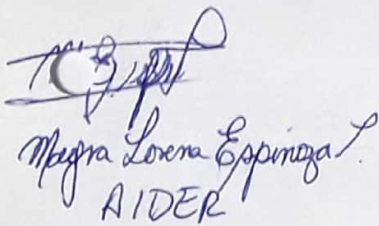 Magra Lorena Espinoza P.
AIDER